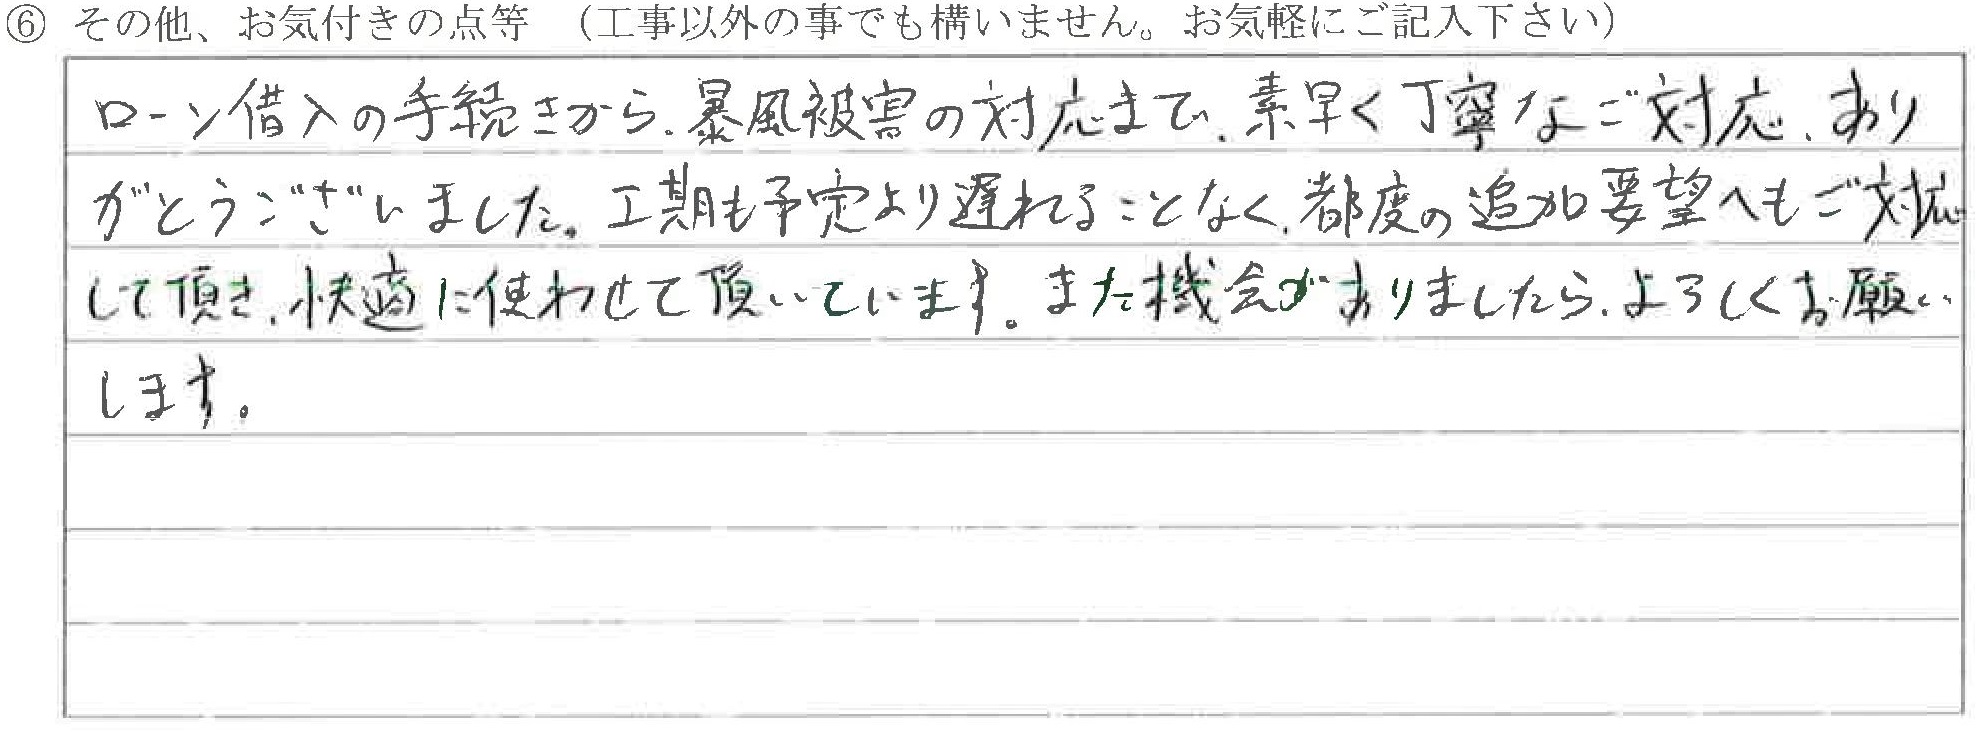 ⑥ その他、お気付きの点等 （工事以外の事でも構いません。お気軽にご記入下さい）
ローン借入の手続きから、暴風被害の対応まで、素早く丁寧なご対応、あり
がとうございました。工期も予定より遅れることなく、都度の追加要望へもご対応
して頂き、快適に使わせて頂いています。また機会がありましたら、よろしくお願い
します。